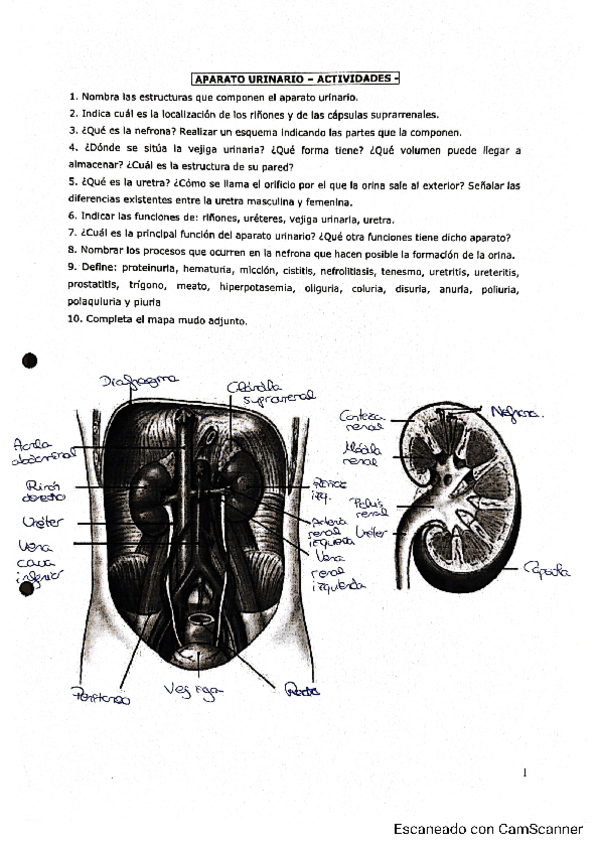 APARATO URINARIO – ACTIVIDADES -
1. Nombra las estructuras que componen el aparato urinario.
2. Indica cuál es la localización de los riñones y de las cápsulas suprarrenales.
3. ¿Qué es la nefrona? Realizar un esquema indicando las partes que la componen.
4. ¿Dónde se sitúa la vejiga urinaria? ¿Qué forma tiene? ¿Qué volumen puede llegar a
almacenar? ¿Cuál es la estructura de su pared?
5. ¿Qué es la uretra? ¿Cómo se llama el orificio por el que la orina sale al exterior? Señalar las
diferencias existentes entre la uretra masculina y femenina.
6. Indicar las funciones de: riñones, uréteres, vejiga urinaria, uretra.
7. ¿Cuál es la principal función del aparato urinario? ¿Qué otra funciones tiene dicho aparato?
8. Nombrar los procesos que ocurren en la nefrona que hacen posible la formación de la orina.
9. Define: proteinuria, hematuria, micción, cistitis, nefrolitiasis, tenesmo, uretritis, ureteritis,
prostatitis, trígono, meato, hiperpotasemia, oliguria, coluria, disuria, anuria, poliuria,
polaquiuria y piuria
10. Completa el mapa mudo adjunto.
Diafragma
Glándula
suprarrenal
Aorta
abdominal
Riñón
derecho
Uréter
Vena
cava
inferior
Riñón
izq.
Arteria
renal
izquierda
Vena
renal
izquierda
Peritoneo
Vejiga
Recto
Corteza
renal
Médula
renal
Pelvis
renal
Uréter
Nefrona.
Cápsula
1
Escaneado con CamScanner